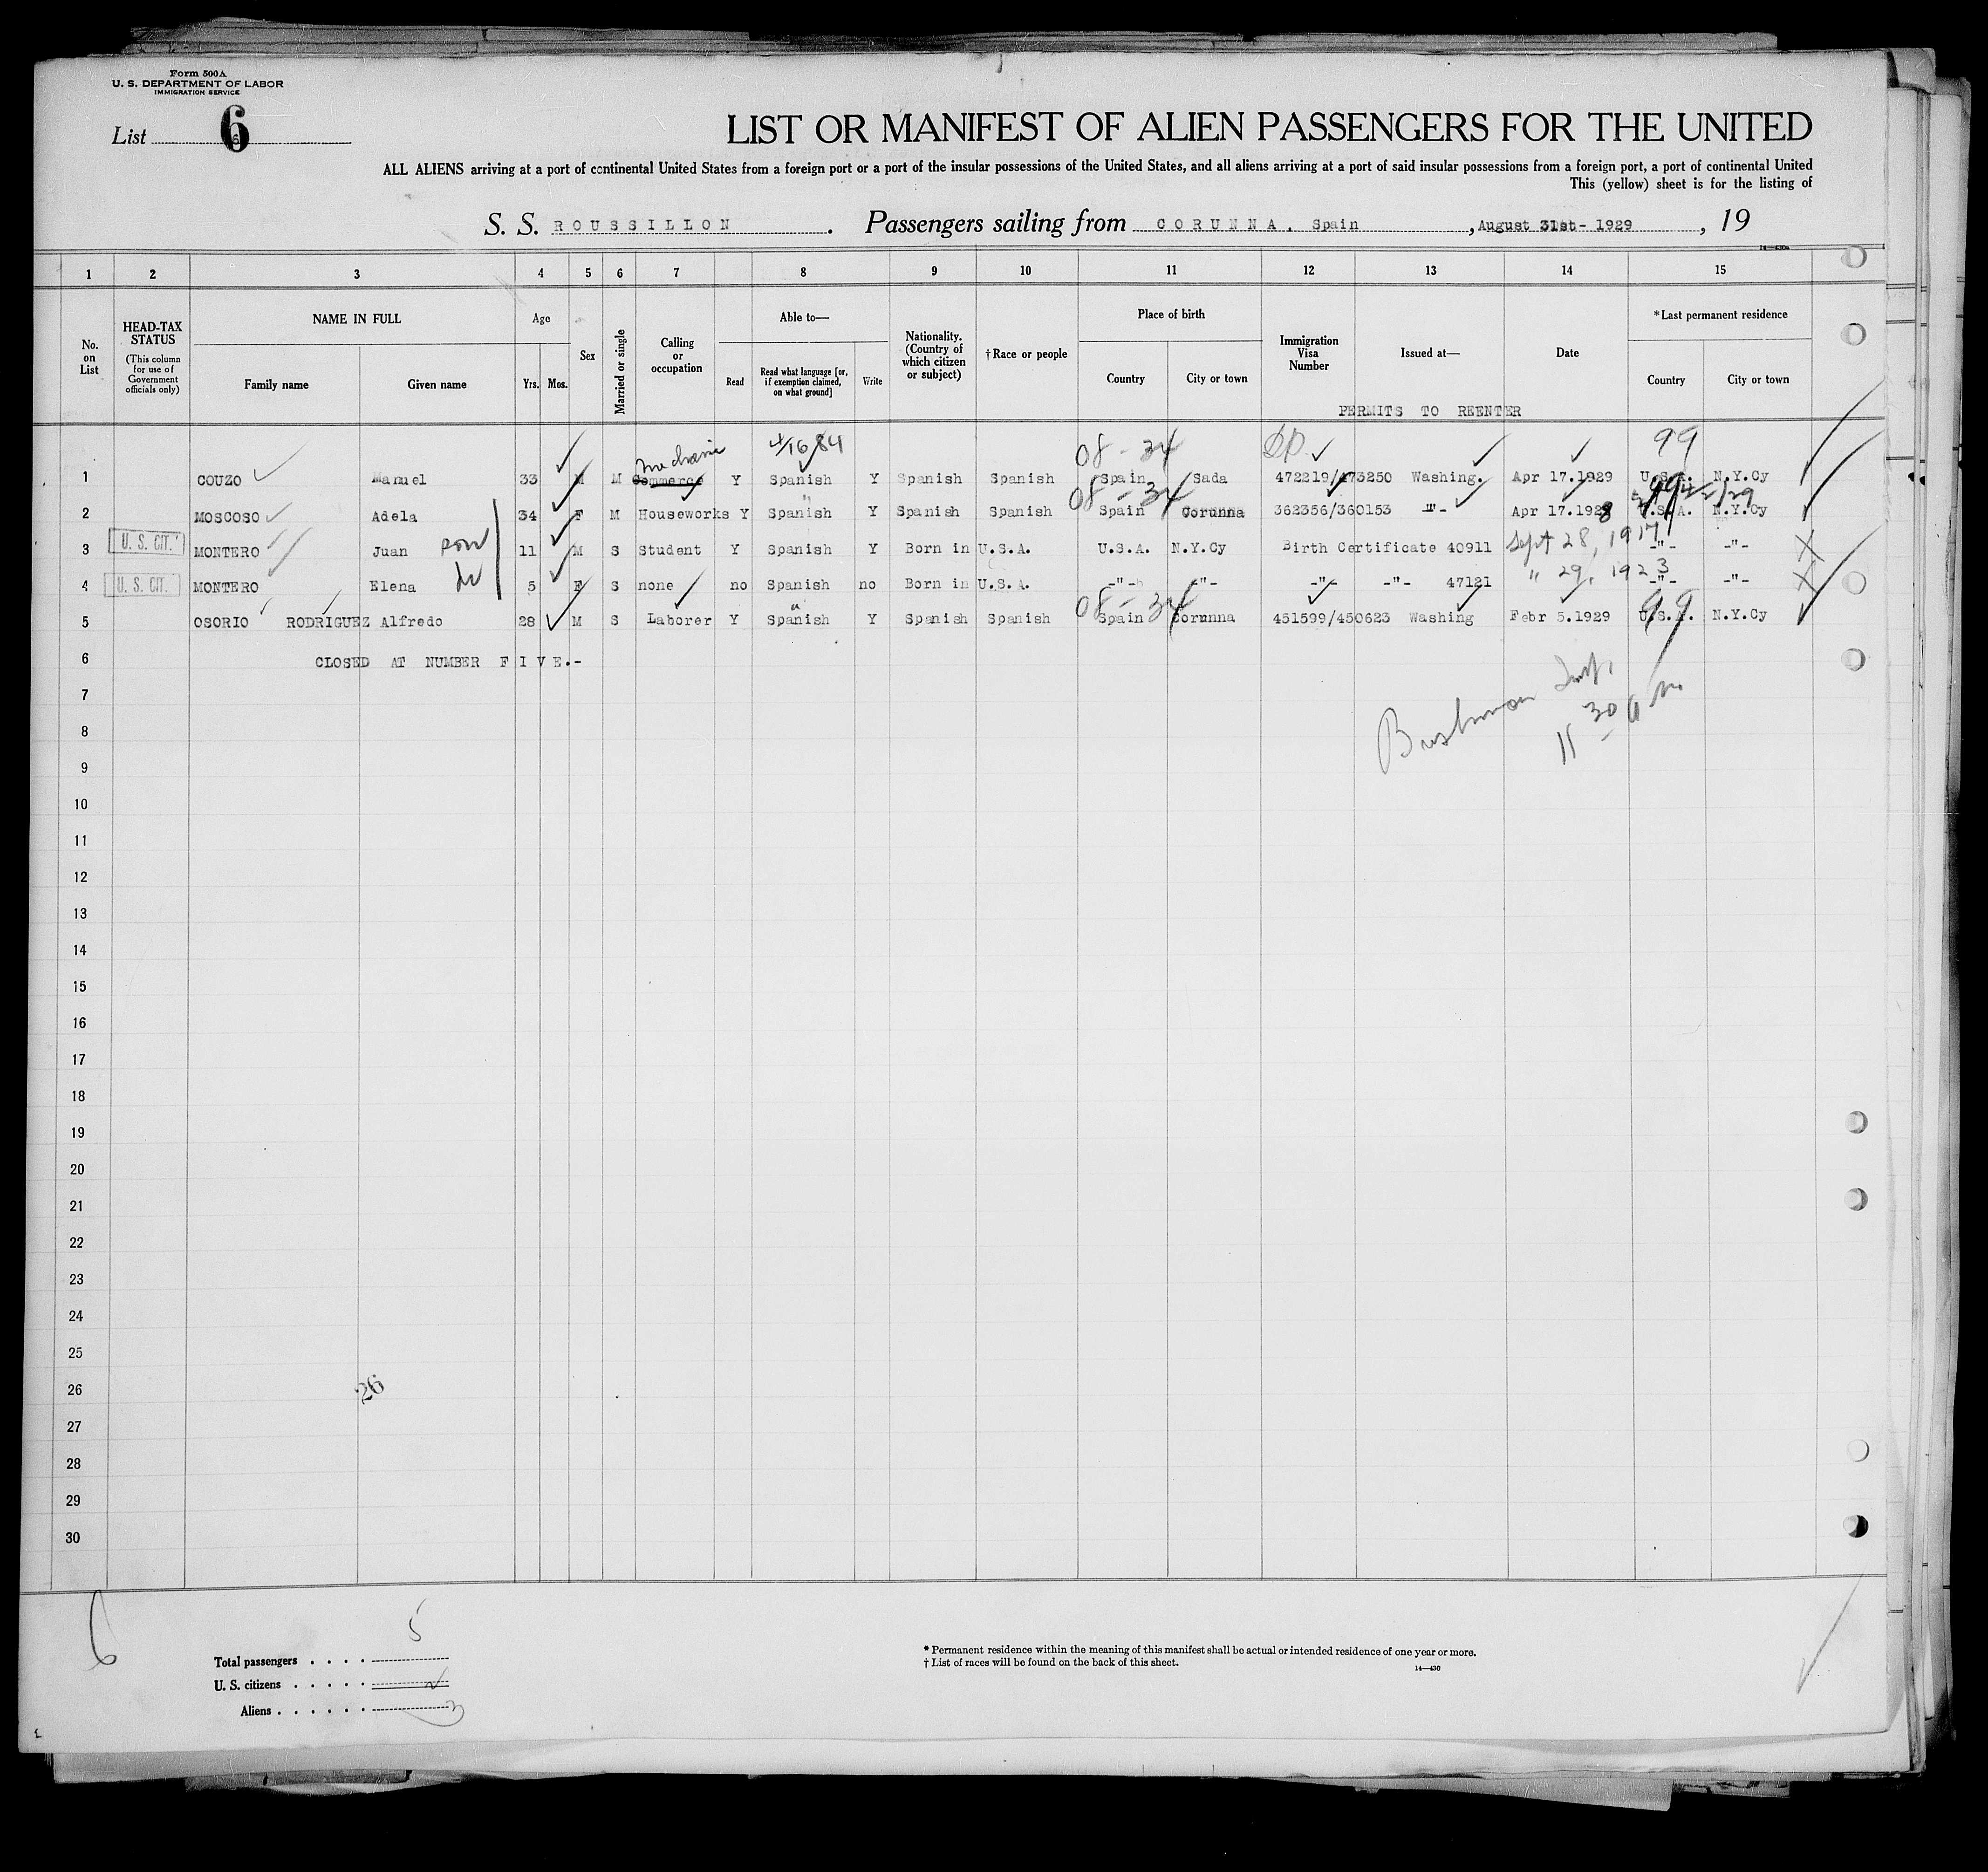 Form 500A
U. S. DEPARTMENT OF LABOR
IMMIGRATION SERVICE
List 6
LIST OR MANIFEST OF ALIEN PASSENGERS FOR THE UNITED
ALL ALIENS arriving at a port of continental United States from a foreign port or a port of the insular possessions of the United States, and all aliens arriving at a port of said insular possessions from a foreign port, a port of continental United
This (yellow) sheet is for the listing of
S. S. ROUSSILLON. Passengers sailing from CORUNNA. Spain, August 31st- 1929, 19
14—430a
1 2 3 4 5 6 7 8 9 10 11 12 13 14 15
No. on List
HEAD-TAX STATUS
(This column for use of Government officials only)
NAME IN FULL
Family name Given name
Age
Yrs. Mos.
Sex
Married or single
Calling or occupation
Able to—
Read
Read what language [or, if exemption claimed, on what ground]
Write
Nationality. (Country of which citizen or subject)
†Race or people
Place of birth
Country City or town
Immigration Visa Number
Issued at—
Date
*Last permanent residence
Country City or town
PERMITS TO REENTER
mechanic 4/16/84 08-34 99
1 COUZO Manuel 33 M M Commerce Y Spanish Y Spanish Spanish Spain Sada 472219/473250 Washing. Apr 17.1929 U.S.A. N.Y.Cy
08-34
2 MOSCOSO Adela 34 F M Houseworks Y Spanish Y Spanish Spanish Spain Corunna 362356/360153 -"- Apr 17.1928 U.S.A. N.Y.Cy
U. S. CIT. 3 MONTERO Juan son 11 M S Student Y Spanish Y Born in U.S.A. U.S.A. N.Y.Cy Birth Certificate 40911 Sept 28, 1917 -"- -"-
U. S. CIT. 4 MONTERO Elena 5 F S none no Spanish no Born in U.S.A. -"- -"- -"- -"- 47121 " 29, 1923 -"- -"-
08-34 99
5 OSORIO RODRIGUEZ Alfredo 28 M S Laborer Y Spanish Y Spanish Spanish Spain Corunna 451599/450623 Washing Febr 5.1929 U.S.A. N.Y.Cy
6 CLOSED AT NUMBER FIVE.-
7
Bushman Insp.
11 30 am
8
9
10
11
12
13
14
15
16
17
18
19
20
21
22
23
24
25
26
26
27
28
29
30
6
5
Total passengers . . . .
U. S. citizens . . . . .
Aliens . . . . . . 3
* Permanent residence within the meaning of this manifest shall be actual or intended residence of one year or more.
† List of races will be found on the back of this sheet.
14—430